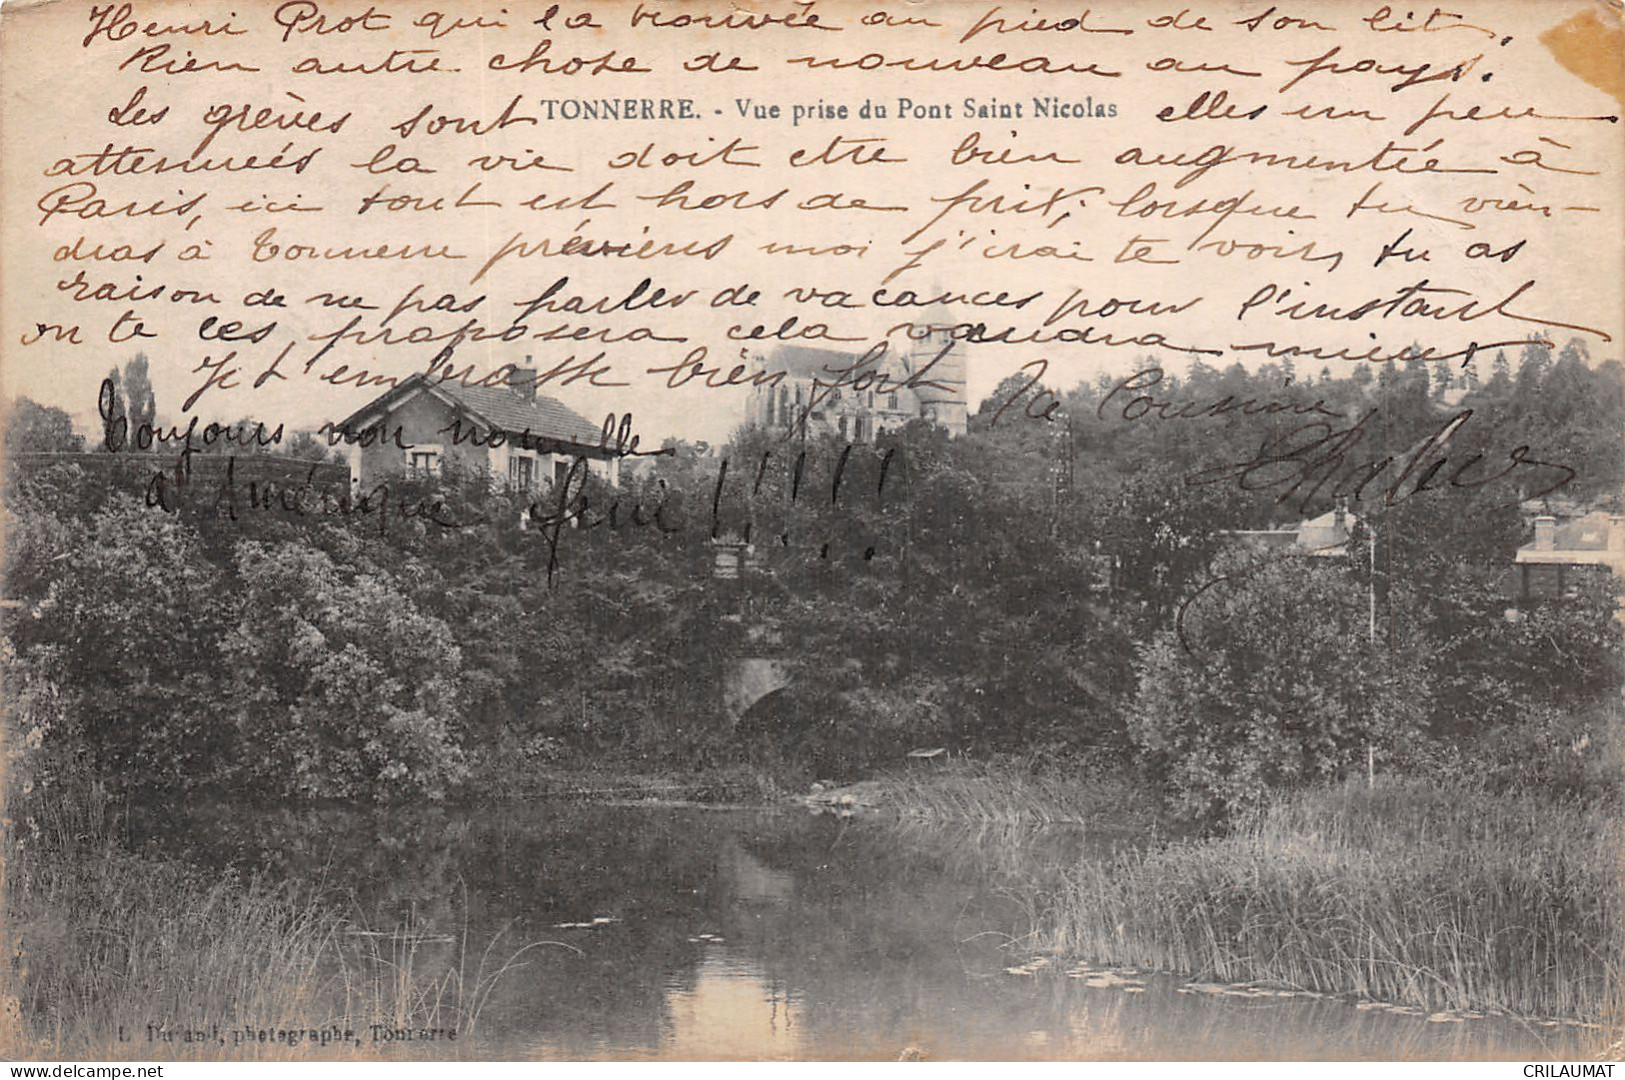 Henri Prot qui la trouvée au pied de son lit.
Rien autre chose de nouveau au pays.
Les grèves sont elles un peu
TONNERRE. - Vue prise du Pont Saint Nicolas
attenueés la vie doit etre bien augmentée à
Paris, ici tout est hors de prix; lorsque tu vien-
dras à Tonnerre préviens moi j'irai te voir, tu as
raison de ne pas parler de vacances pour l'instant
on te les proposera cela vaudra mieux
Je t'embrasse bien fort ta Cousine
Toujours non nouvelle
d'Amérique fini !!!!!
L. Durand, photographe, Tonnerre
CRILAUMAT